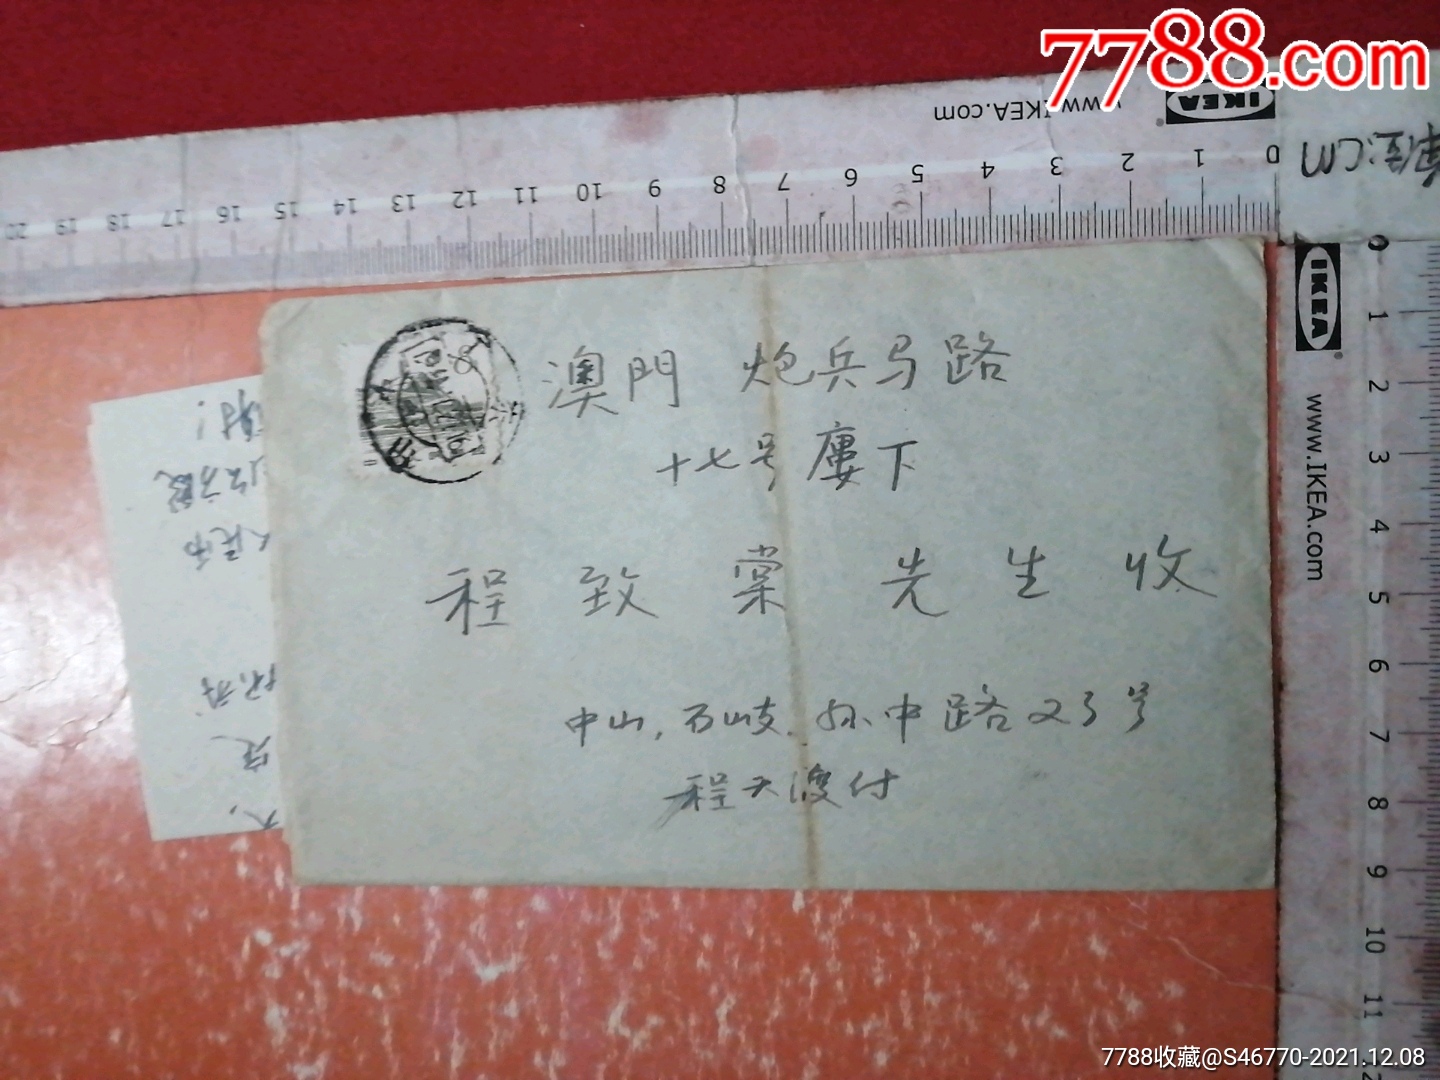 7788.com
www.IKEA.com
IKEA
单位:CM
0 1 2 3 4 5 6 7 8 9 10 11 12 13 14 15 16 17 18 19 20
IKEA
www.IKEA.com
0 1 2 3 4 5 6 7 8 9 10 11
8
澳門 炮兵马路
十七号廔下
程致棠先生收
中山.石岐.孙中路23号
程天渡付
人民币
7788收藏@S46770-2021.12.08